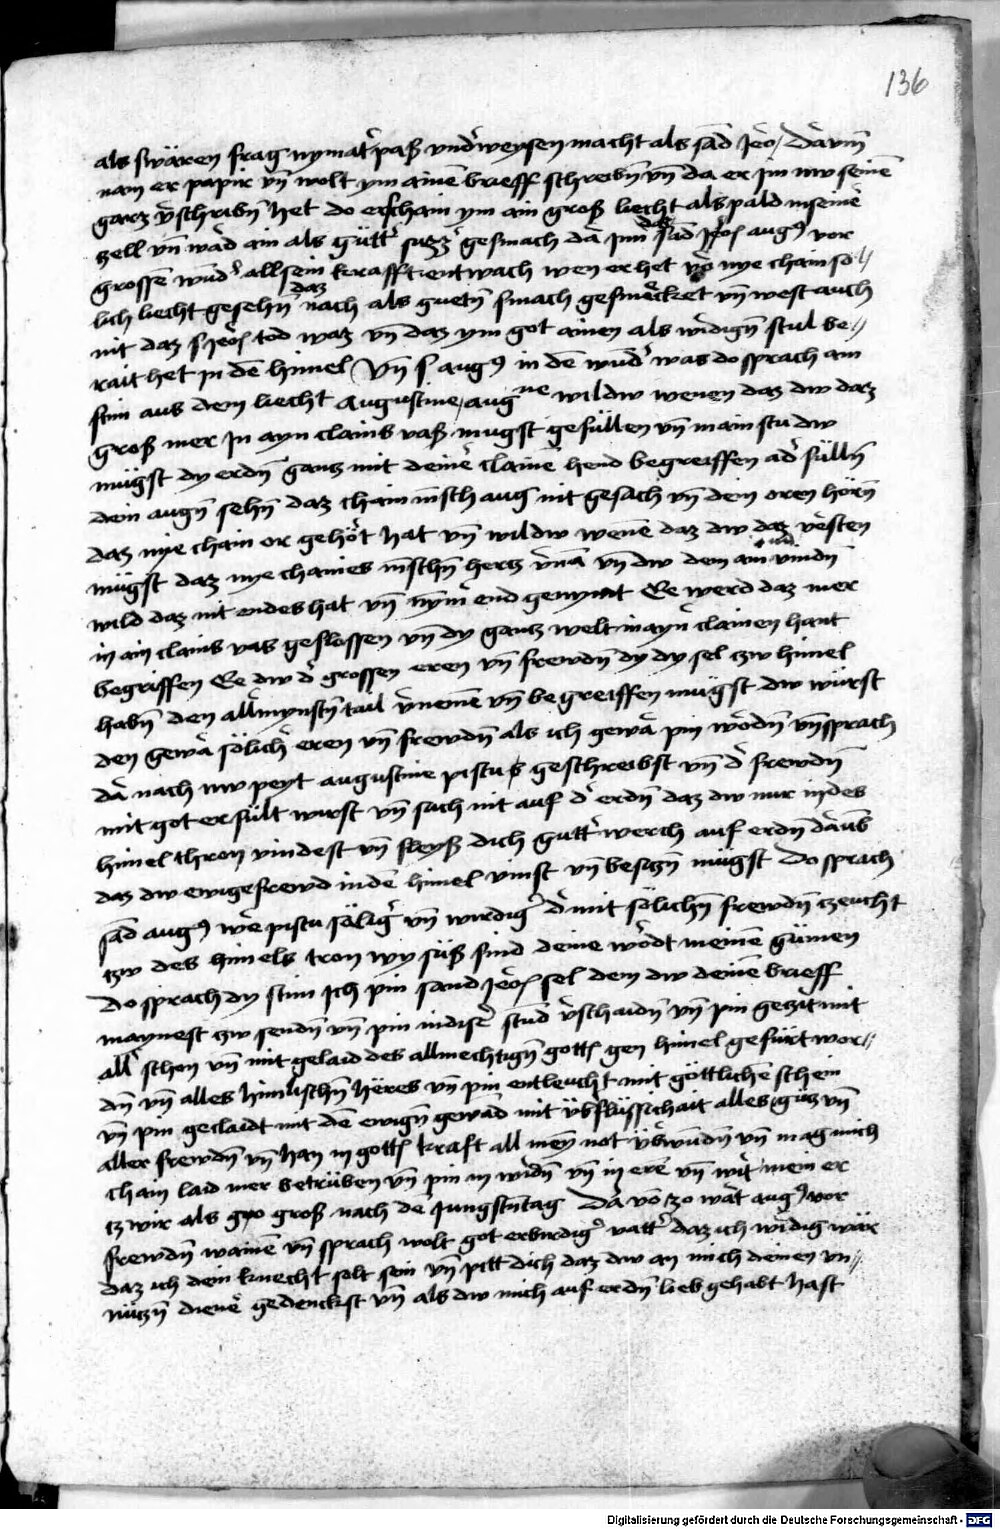 136
als swären frag nymat paß vnd weysen macht als sād Jeo / Darūm
nam er papir vn̄ wolt ym ainē brieff schreibn̄ vn̄ da er jm nw seinē
garz v̄schribn̄ het do erschain ym ain groß liecht als pald in seinē
zell vn̄ ward ain als gůttr̄ süzzr̄ gesmach da jnn daz sād Jeroꝭ augꝰ vor
grossē wūdr̄ all sein krafft entwach wen er het vo nye chain sö⸗
lich liecht gesehn̄ daz nach als guetn̄ smach gesmäcket vn̄ west auch
nit daz s Jeroꝭ tod waz vn̄ daz ym got ainen als wirdign̄ stul be⸗
rait het in dē himel Vn̄ s augꝰ in dē wūdr̄ was do sprach ain
stim aus dem liecht Augustine / augꝰne wildw wenen daz dw daz
groß mer in ayn clains vaß mugst gefüllen vn̄ mainstu dw
mügst dy erdn̄ gantz mit deinē clainē hend begreiffen adr̄ sülln̄
dein augn̄ sehn̄ daz chain mn̄sch aug nit gesach vn̄ dein oren hörn̄
daz nye chain or gehört hat vn̄ wildw wenē daz dw daz v̄sten
mügst daz nye chaines mn̄schn̄ hertz v̄nā vn̄ dw dem ain end vindn̄
wild daz nit endes hat vn̄ nym̄ end genymt Ee werd daz mer
in ain clains vas geslossen vn̄ dy gantz welt in ayn̄ clainen hant
begriffen Ee dw dr̄ grossen eren vn̄ frewdn̄ dy dy sel tzw himel
habn̄ den allr̄mynstn̄ tail v̄nemē vn̄ begreiffen mügst dw würst
den gewar sölichr̄ eren vn̄ frewdn̄ als ich gewar pin wordn̄ vn̄ sprach
dar nach nw peyt augustine pistu s geschreibst vn̄ dr̄ frewdn̄
mit got erfült wirst vn̄ such nit auf dr̄ erdn̄ daz dw nur in des
himel thron vindest vn̄ fleyß dich guttr̄ werch auf erdn̄ darūb
daz dw ewige frewd in dē himel vinst vn̄ besiczn̄ mügst Do sprach
sād augꝰ wer pistu säligr̄ vn̄ wirdigr̄ dr̄ mit sölichn̄ frewdn̄ czeucht
tzw des himels tron wy süß sind deine wordt meinē gümen
Do sprach dy stim Ich pin sand Jeroꝭ sel dem dw deinē brieff
maynest tzw sendn̄ vn̄ pin in disr̄ stūd v̄schaidn̄ vn̄ pin geczirt mit
allr̄ schon vn̄ mit gelaid des allmechtign̄ gottꝭ gen himel gefürt wor⸗
dn̄ vn̄ alles himlischn̄ häres vn̄ pin entleucht mit göttlichē schein
vn̄ pin geclaidt mit dē ewign̄ gewād mit üb̄flüssichait alles gutz vn̄
aller frewdn̄ vn̄ han in gottꝭ kraft all mēn not üb̄wūdn̄ vn̄ mag mich
chain laid mer betrüben vn̄ pin in wirdn̄ vn̄ in erē vn̄ wirt mein er
tzwir als gro groß nach de Jungstn̄ tag Da vō tzo wart augꝰ vor
frewdn̄ wainē vn̄ sprach wolt got erbirdigr̄ vattr̄ daz ich wirdig wär
daz ich dein knecht solt sein vn̄ pitt dich daz dw an mich deinen vn⸗
nützn̄ dienē gedenckst vn̄ als dw mich auf erdn̄ lieb gehabt hast
Digitalisierung gefördert durch die Deutsche Forschungsgemeinschaft - DFG